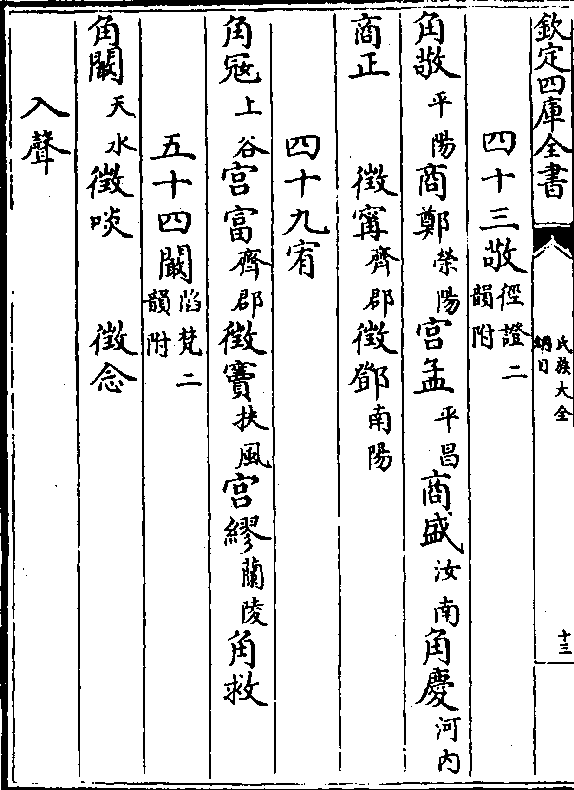 欽定四庫全書
氏族大全
綱目
十三
四十三敬 徑證二韻附
角敬 平陽 商鄭 滎陽 宮孟 平昌 商盛 汝南 角慶 河内
商正 徵甯 齊郡 徵鄧 南陽
四十九宥
角宼 上谷 宮富 齊郡 徵竇 扶風 宮繆 蘭陵 角救
五十四闞 陷梵二韻附
角闞 天水 徵啖 徵念
入聲